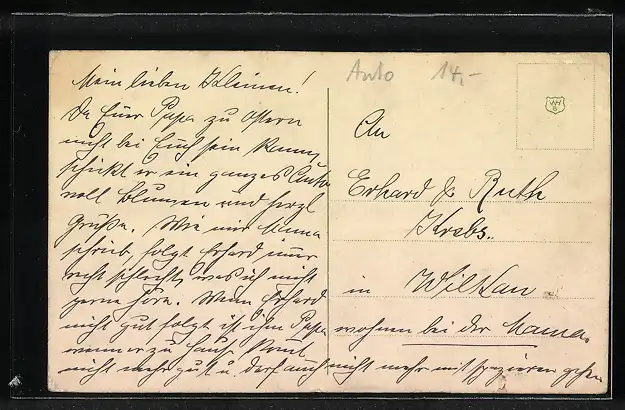 Mein lieben Kleinen!
Da Euer Papa zu Ostern
nicht bei Euch sein kann,
schickt er ein ganzes Auto
voll Blumen und herzl.
Grüße. Wie mir Mama
schrieb, folgt Erhard immer
recht schlecht, was ich nicht
gerne höre. Wenn Erhard
nicht gut folgt ist ihm Papa
wenn er zu Haus kommt
nicht mehr gut u. darf auch nicht mehr mit spazieren gehen
Auto 14,-
WH
An
Erhard & Ruth
Krebs.
in Wilkau
wohnen bei der Mama.